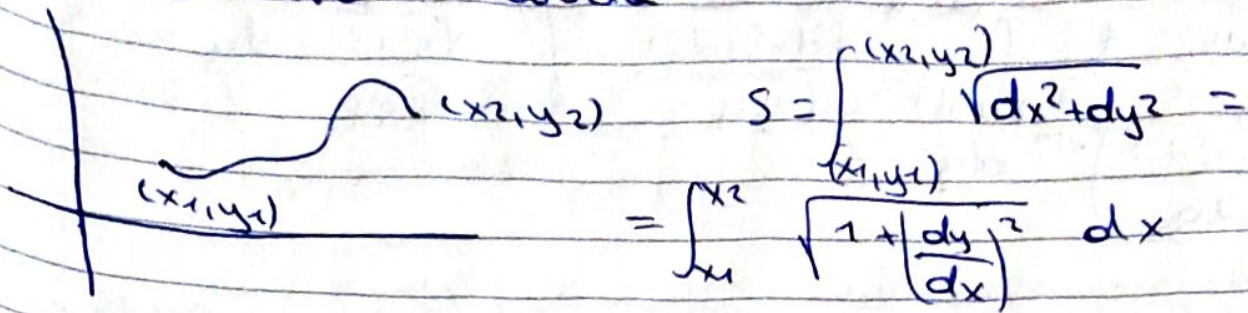 (x2,y2)
(x1,y1)
S = ∫_(x1,y1)^(x2,y2) √dx²+dy² =
= ∫_x1^x2 √1+(dy/dx)² dx